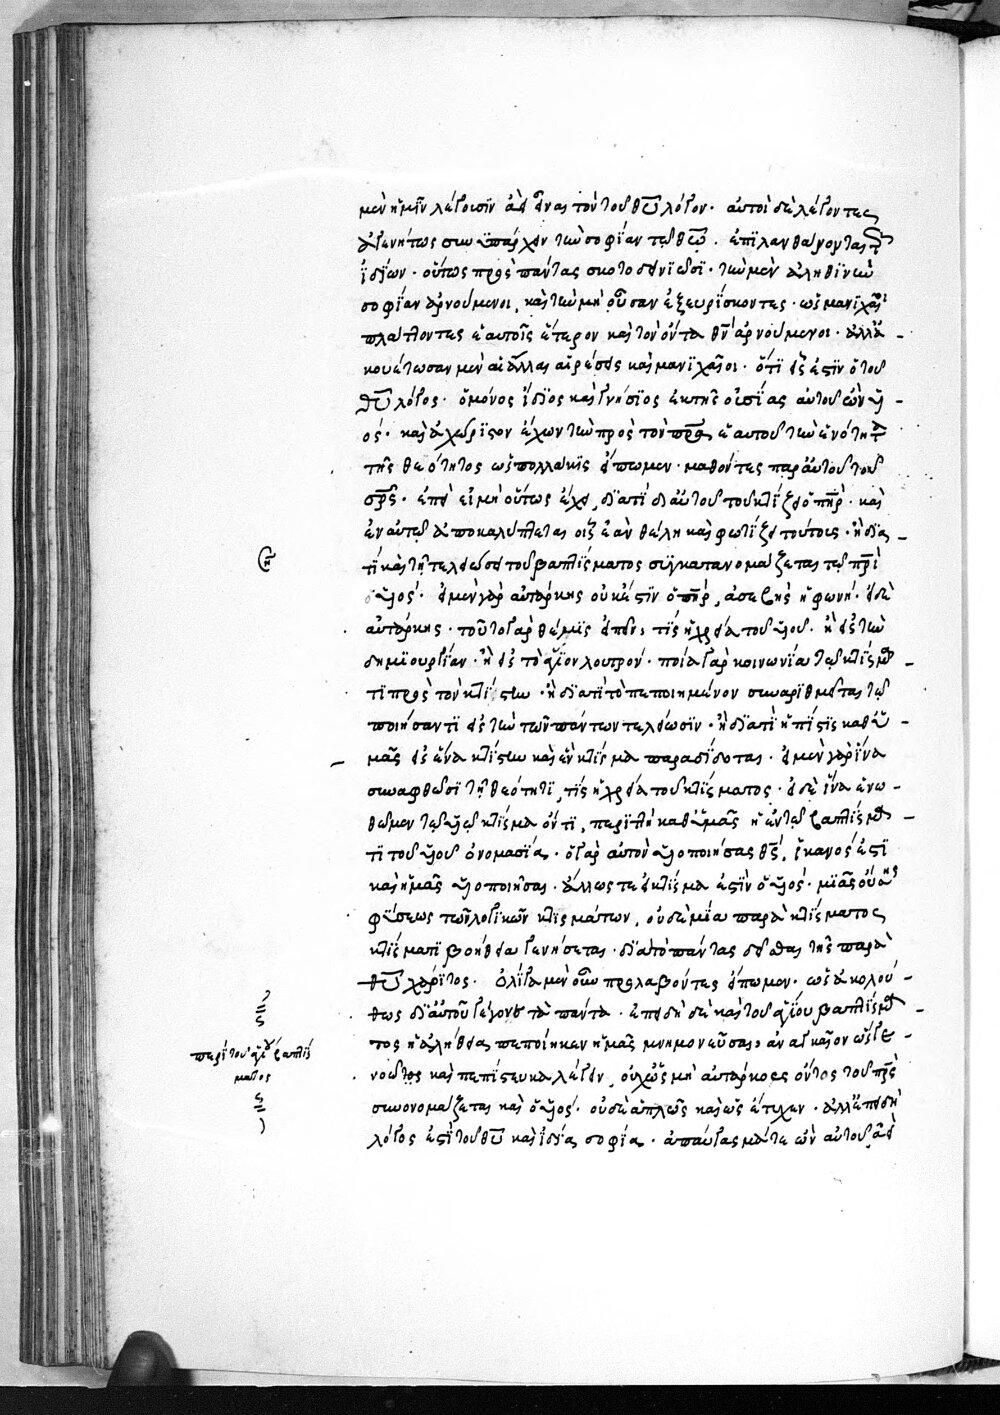 μὲν ἡμῖν λέγουσιν ἀεὶ εἶναι τὸν τοῦ θ̅υ̅ λόγον· αὐτοὶ δὲ λέγοντες
ἀγενήτως συνυπάρχειν τὴν σοφίαν τῷ θ̅ω̅. ἐπιλανθάνονται τῶν
ἰδίων· οὕτως πρὸς πάντας σκοτοδινιῶσι· τὴν μὲν ἀληθινὴν
σοφίαν ἀρνούμενοι, καὶ τὴν μὴ οὖσαν ἐξευρίσκοντες· ὡς μανιχαῖοι
πλάττοντες ἑαυτοῖς ἕτερον καὶ τὸν ὄντα θ̅ν̅ ἀρνούμενοι· ἀλλ' ἀ-
κουέτωσαν μὲν αἱ ἄλλαι αἱρέσεις καὶ μανιχαῖοι· ὅτι εἷς ἐστὶν ὁ τοῦ
θ̅υ̅ λόγος· ὁ μόνος ἴδιος καὶ γνήσιος ἐκ τῆς οὐσίας αὐτοῦ ὢν υἱ-
ός· καὶ ἀχώριστον ἔχων τὴν πρὸς τὸν π̅ρ̅α̅ ἑαυτοῦ τὴν ἑνότητα
τῆς θεότητος ὡς πολλάκις εἴπωμεν· μαθόντες παρ' αὐτοῦ τοῦ
σ̅ρ̅ς̅· ἐπεὶ εἰ μὴ οὕτως ἔχει, διατί δι' αὐτοῦ τοῦ κτίζει ὁ π̅η̅ρ̅· καὶ
ἐν αὐτῷ ἀποκαλύπτεται οἷς ἐὰν θέλη καὶ φωτίζει τούτους· ἢ δια-
τί καὶ τῇ τελειώσει τοῦ βαπτίσματος συγκατονομάζεται τῷ π̅ρ̅ι̅
ὁ υἱός· εἰ μὲν γὰρ αὐτάρκης οὐκ ἐστὶν ὁ π̅η̅ρ̅, ἀσεβὴς ἡ φωνή· εἰ δὲ
αὐτάρκης· τοῦτο γὰρ θέμις εἰπεῖν, τίς ἡ χρεία τοῦ υἱοῦ. ἢ εἰς τὴν
δημιουργίαν· ἢ εἰς τὸ ἅγιον λουτρόν· ποία γὰρ κοινωνία τῷ κτίσμα-
τι πρὸς τὸν κτίστην· ἢ διατί τὸ πεποιημένον συναριθμεῖται τῷ
ποιήσαντι εἰς τὴν τῶν πάντων τελείωσιν· ἢ διατί ἡ πίστις καθ' ὑ-
μᾶς εἰς ἕνα κτίστην καὶ ἓν κτίσμα παραδίδοται· εἰ μὲν γὰρ ἵνα
συναφθῶσι τῇ θεότητι, τίς ἡ χρεία τοῦ κτίσματος· εἰ δὲ ἵνα ἑνω-
θῶμεν τῷ υἱῷ κτίσματι ὄντι, περιττὴ καθ' ὑμᾶς ἡ ἐν τῷ βαπτίσμα-
τι τοῦ υἱοῦ ὀνομασία· ὁ γὰρ αὐτὸν υἱοποιήσας θ̅ς̅, ἱκανός ἐστι
καὶ ἡμᾶς υἱοποιῆσαι· ἄλλως τε εἰ κτίσμα ἐστὶν ὁ υἱός· μιᾶς οὔσης
φύσεως τῶν λογικῶν κτισμάτων, οὐδεμία παρὰ κτίσματος
κτίσματι βοήθεια γενήσεται· διὰ τὸ πάντας δεῖσθαι τῆς παρὰ
θ̅υ̅ χάριτος· ὀλίγα μὲν οὖν προλαβόντες εἴπωμεν· ὡς ἀκολού-
θως δι' αὐτοῦ γέγονε τὰ πάντα· ἐπειδὴ δὲ καὶ τοῦ ἁγίου βαπτίσμα-
τος ἡ ἀλήθεια πεποίηκεν ἡμᾶς μνημονεῦσαι, ἀναγκαῖον ὡς γε
νοῶ καὶ πεπίστευκα λέγειν, οὐχ ὡς μὴ αὐτάρκους ὄντος τοῦ π̅ρ̅ς̅
συνονομάζεται καὶ ὁ υἱός· οὐδὲ ἁπλῶς καὶ ὡς ἔτυχεν· ἀλλ' ἐπειδὴ
λόγος ἐστὶ τοῦ θ̅υ̅ καὶ ἰδία σοφία· ἀπαύγασμά τε ὢν αὐτοῦ ἀεὶ
περὶ τοῦ ἁγίου βαπτίσ
ματος